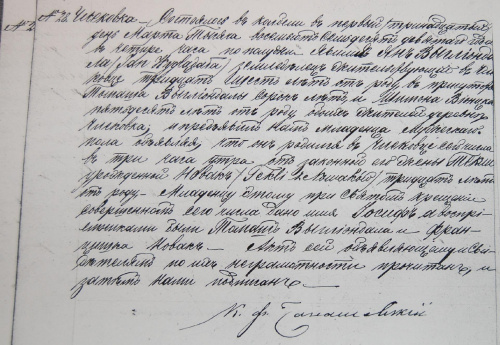 № 26. Чижовка. Состоялся въ въ первый (тринадцатый)
день Марта тысяча восемьсотъ семьдесятъ девятаго года
въ четыре часа по полудни. Явился Янъ Выгленда
ла (Jan Wyglądała), земледѣлецъ жительствующій въ
тридцать шесть лѣтъ отъ роду, въ присутствіи
Томаша Выглендалы сорокъ лѣтъ и Антона
пятьдесятъ лѣтъ отъ роду, обоихъ жителей деревни
Чижовка, и предъявилъ намъ младенца мужескаго
пола объявляя, что онъ родился въ Чижовкѣ сего числа
въ три часа утра отъ законной его жены Теклі
урожденной Новакъ (Tekli z Nowaków) тридцать лѣтъ
отъ роду. Младенцу этому при святомъ крещеніи
совершенномъ сего числа дано имя Іосифъ, а воспрі
емниками были Томашъ Выглендала и Фран
цишка Новакъ. Актъ сей объявляющему и сви
дѣтелямъ по ихъ неграмотности прочитанъ, и
затѣмъ нами подписанъ.